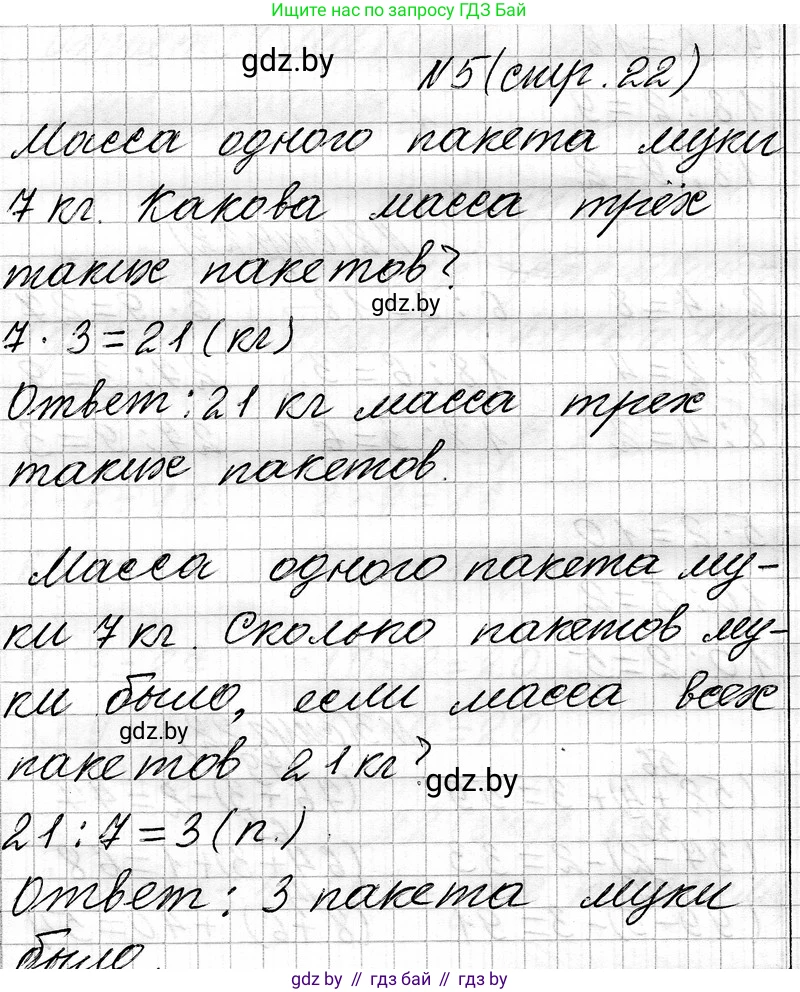 Ищите нас по запросу ГДЗ Бай
gdz.by
№5(стр. 22)
Масса одного пакета муки
7 кг. Какова масса трёх
таких пакетов?
gdz.by
7 · 3 = 21 (кг)
Ответ: 21 кг масса трех
таких пакетов.
Масса одного пакета му-
ки 7 кг. Сколько пакетов му-
ки было, если масса всех
gdz.by
пакетов 21 кг?
gdz.by
21 : 7 = 3 (п.)
Ответ: 3 пакета муки
было.
gdz.by // гдз бай // gdz.by